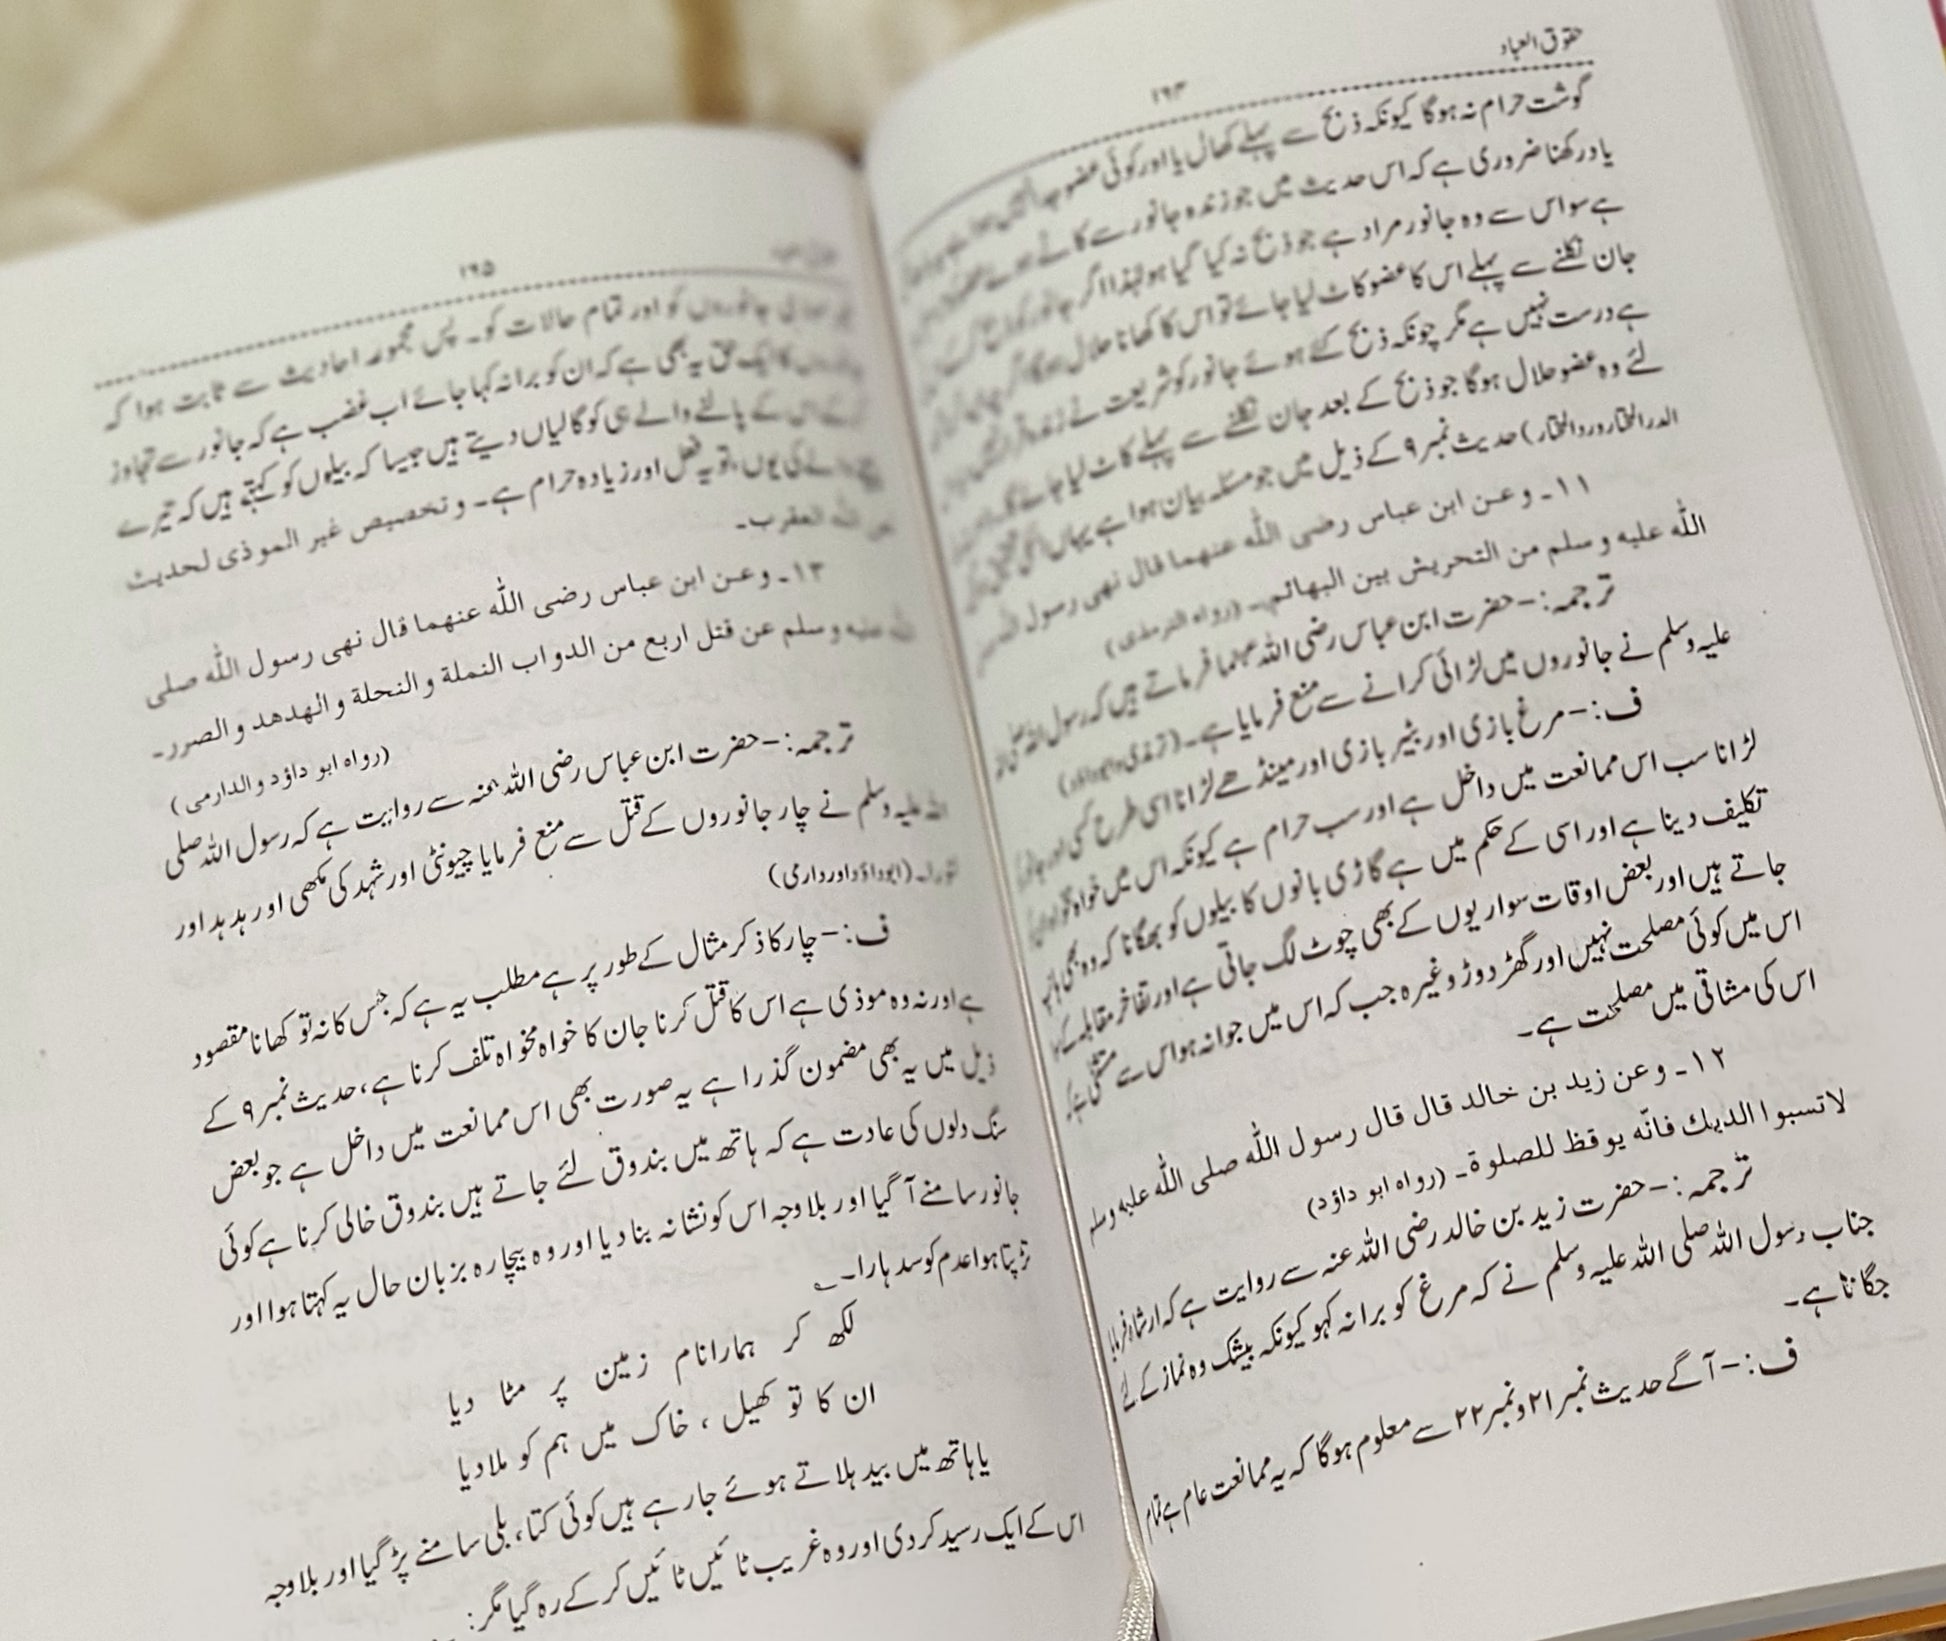 حقوق العباد
۱۹۴
گوشت حرام نہ ہوگا کیونکہ ذبح سے پہلے کھال یا اور کوئی عضو
یاد رکھنا ضروری ہے کہ اس حدیث میں جو زندہ جانور سے کاٹے ہوئے عضو
ہے سو اس سے وہ جانور مراد ہے جو ذبح نہ کیا گیا ہو لہٰذا اگر جانور کو ذبح کر کے
جان نکلنے سے پہلے اس کا عضو کاٹ لیا جائے تو اس کا کھانا حلال ہوگا اگر چہ ایسا کرنا
ہے درست نہیں ہے مگر چونکہ ذبح کئے ہوئے جانور کو شریعت نے زندہ قرار نہیں دیا
لئے وہ عضو حلال ہوگا جو ذبح کے بعد جان نکلنے سے پہلے کاٹ لیا جائے گا۔
الدر المختار ورد المختار) حدیث نمبر ۹ کے ذیل میں جو مسئلہ بیان ہوا ہے یہاں
۱۱۔ وعن ابن عباس رضی اللہ عنهما قال نهى رسول
اللہ علیہ وسلم من التحریش بین البهائم۔ (رواہ الترمذی)
ترجمہ:- حضرت ابن عباس رضی اللہ عنہما فرماتے ہیں کہ رسول اللہ صلی اللہ
علیہ وسلم نے جانوروں میں لڑائی کرانے سے منع فرمایا ہے۔ (ترمذی وابوداؤد)
ف:- مرغ بازی اور بٹیر بازی اور مینڈھے لڑانا اسی طرح کسی اور جانور
لڑانا سب اس ممانعت میں داخل ہے اور سب حرام ہے کیونکہ اس میں خواہ مخواہ ان کو
تکلیف دینا ہے اور اسی کے حکم میں ہے گاڑی بانوں کا بیلوں کو بھگانا کہ وہ بھی ہانپ
جاتے ہیں اور بعض اوقات سواریوں کے بھی چوٹ لگ جاتی ہے اور تفاخر مقابلہ کے
اس میں کوئی مصلحت نہیں اور گھڑ دوڑ وغیرہ جب کہ اس میں جوا نہ ہو اس سے مستثنیٰ ہے
اس کی مشاقی میں مصلحت ہے۔
۱۲۔ وعن زید بن خالد قال قال رسول اللہ صلی اللہ علیہ وسلم
لاتسبوا الدیك فانّہ یوقظ للصلوة۔ (رواہ ابو داؤد)
ترجمہ:- حضرت زید بن خالد رضی اللہ عنہ سے روایت ہے کہ ارشاد فرمایا
جناب رسول اللہ صلی اللہ علیہ وسلم نے کہ مرغ کو برا نہ کہو کیونکہ بیشک وہ نماز کے لئے
جگاتا ہے۔
ف:- آگے حدیث نمبر ۲۱ و نمبر ۲۲ سے معلوم ہوگا کہ یہ ممانعت عام ہے تمام
۱۹۵
جانوروں کو اور تمام حالات کو۔ پس مجموعہ احادیث سے ثابت ہوا کہ
کا ایک حق یہ بھی ہے کہ ان کو برا نہ کہا جائے اب غضب ہے کہ جانور سے تجاوز
کر کے اس کے پالنے والے ہی کو گالیاں دیتے ہیں جیسا کہ بیلوں کو کہتے ہیں کہ تیرے
والے کی یوں، تو یہ فعل اور زیادہ حرام ہے۔ وتخصیص غیر الموذی لحدیث
اللہ العقرب۔
۱۳۔ وعن ابن عباس رضی اللہ عنهما قال نهى رسول اللہ صلی
اللہ علیہ وسلم عن قتل اربع من الدواب النملة والنحلة والهدهد والصرر۔
(رواہ ابو داؤد والدارمی)
ترجمہ:- حضرت ابن عباس رضی اللہ عنہ سے روایت ہے کہ رسول اللہ صلی
اللہ علیہ وسلم نے چار جانوروں کے قتل سے منع فرمایا چیونٹی اور شہد کی مکھی اور ہدہد اور
(ابوداؤد اور دارمی)
ف:- چار کا ذکر مثال کے طور پر ہے مطلب یہ ہے کہ جس کا نہ تو کھانا مقصود
ہے اور نہ وہ موذی ہے اس کا قتل کرنا جان کا خواہ مخواہ تلف کرنا ہے، حدیث نمبر ۹ کے
ذیل میں یہ بھی مضمون گذرا ہے یہ صورت بھی اس ممانعت میں داخل ہے جو بعض
سنگ دلوں کی عادت ہے کہ ہاتھ میں بندوق لئے جاتے ہیں بندوق خالی کرنا ہے کوئی
جانور سامنے آگیا اور بلاوجہ اس کو نشانہ بنا دیا اور وہ بیچارہ بزبان حال یہ کہتا ہوا اور
تڑپتا ہوا عدم کو سدہارا۔
لکھ کر ہمارا نام زمین پر مٹا دیا
ان کا تو کھیل، خاک میں ہم کو ملا دیا
یا ہاتھ میں بید ہلاتے ہوئے جا رہے ہیں کوئی کتا، بلی سامنے پڑ گیا اور بلاوجہ
اس کے ایک رسید کر دی اور وہ غریب ٹائیں ٹائیں کر کے رہ گیا مگر: